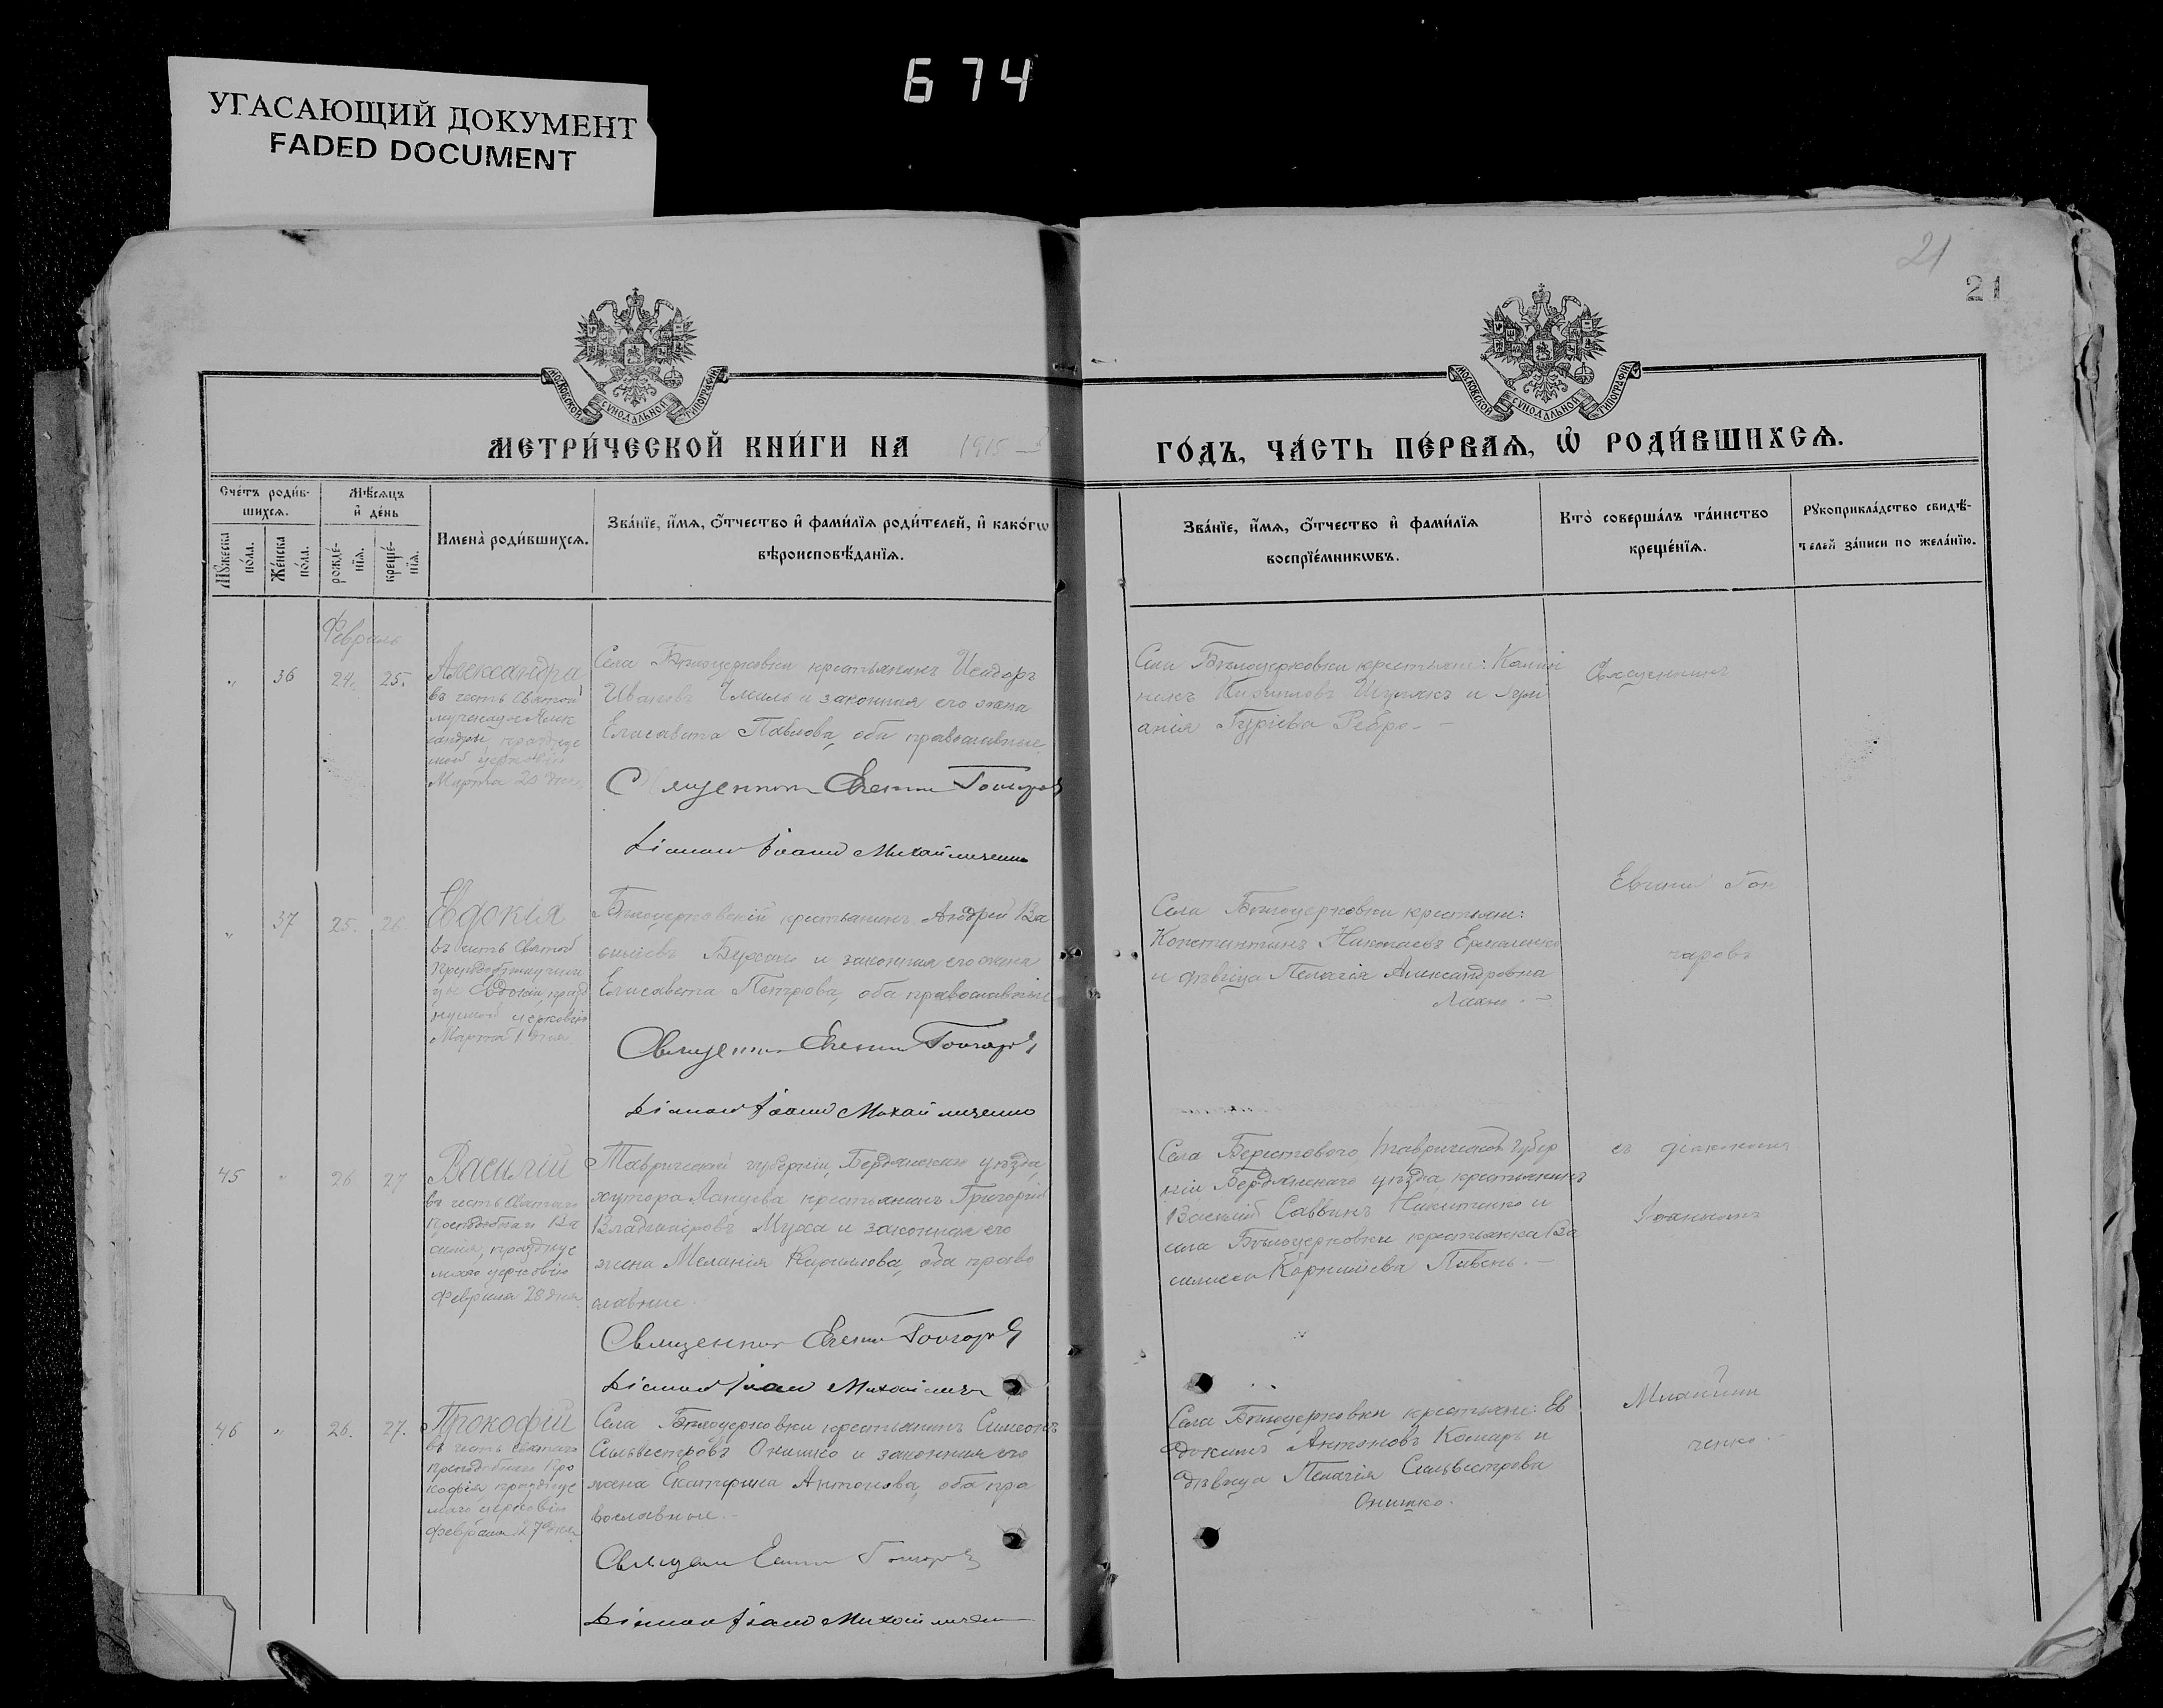 674
УГАСАЮЩИЙ ДОКУМЕНТ
FADED DOCUMENT
21
21
МОСКОВСКОЙ СѴНОДАЛЬНОЙ ТИПОГРАФІИ
МОСКОВСКОЙ СѴНОДАЛЬНОЙ ТИПОГРАФІИ
МЕТРИ́ЧЕСКОЙ КНИ́ГИ НА 1915
ГО́ДЪ, ЧА́СТЬ ПЕ́РВАѦ, Ѡ҆ РОДИ́ВШИХСѦ.
Сче́тъ роди́в-
шихсѧ.
Мѹжеска по́ла.
Же́нска по́ла.
Мѣ́сѧцъ
и҆ де́нь
рожде́-
нїѧ.
креще́-
нїѧ.
Имена̀ роди́вшихсѧ.
Зва́нїе, и҆́мѧ, ѻ҆́тчество и҆ фами́лїѧ роди́телей, и҆ како́гѡ
вѣроисповѣ́данїѧ.
Зва́нїе, и҆́мѧ, ѻ҆́тчество и҆ фами́лїѧ
воспрїе́мникѡвъ.
Кто̀ соверша́лъ та́инство
креще́нїѧ.
Рѹкоприкла́дство свидѣ́-
телей за́писи по жела́нїю.
Февраль
" 36 24. 25.
Александра
въ честь Святой
мученицы Алек
сандры, празднуе
мой церковію
Марта 20 дня.
Села Бѣлоцерковки крестьянинъ Исидоръ
Ивановъ и законная его жена
Елисавета Павлова, оба православные.
Священникъ Евгеній Гончаровъ
Діаконъ Іоаннъ Михайличенко
Села Бѣлоцерковки крестьяне:
Кирилловъ и
Гуріева Ребро.
Священникъ
" 37 25. 26.
Евдокія
въ честь Святой
Преподобномучени
цы Евдокіи, празд
нуемой церковію
Марта 1 дня.
Бѣлоцерковскій крестьянинъ Андрей Ва
сильевъ и законная его жена
Елисавета Петрова, оба православные
Священникъ Евгеній Гончаровъ
Діаконъ Іоаннъ Михайличенко
Села Бѣлоцерковки крестьяне:
Константинъ Николаевъ Ермоленко
и дѣвица Пелагія Александровна
Евгеній Гон
чаровъ
45 " 26 27
Василій
въ честь Святаго
Преподобнаго Ва
силія, празднуе
маго церковію
Февраля 28 дня.
Таврической губерніи, Бердянскаго уѣзда,
хутора крестьянинъ Григорій
Владиміровъ Муха и законная его
жена Меланія Кириллова, оба право
славные.
Священникъ Евгеній Гончаровъ
Діаконъ Іоаннъ Михайличенко
Села Берестового, Таврической губер
ніи Бердянскаго уѣзда, крестьянинъ
Василій Саввинъ Никитенко и
села Бѣлоцерковки крестьянка Ва
силиса Корниліева Пивень.
съ діакономъ
Іоанномъ
46 " 26. 27.
Прокофій
въ честь Святаго
преподобнаго Про
кофія празднуе
маго церковію
Февраля 27 дня
Села Бѣлоцерковки крестьянинъ Симеонъ
Сильвестровъ Онишко и законная его
жена Екатерина Антонова, оба пра
вославные.
Священникъ Евгеній Гончаровъ
Діаконъ Іоаннъ Михайличенко
Села Бѣлоцерковки крестьяне: Ев
докимъ Антоновъ Комаръ и
дѣвица Пелагія Сильвестрова
Онишко.
Михайли
ченко.